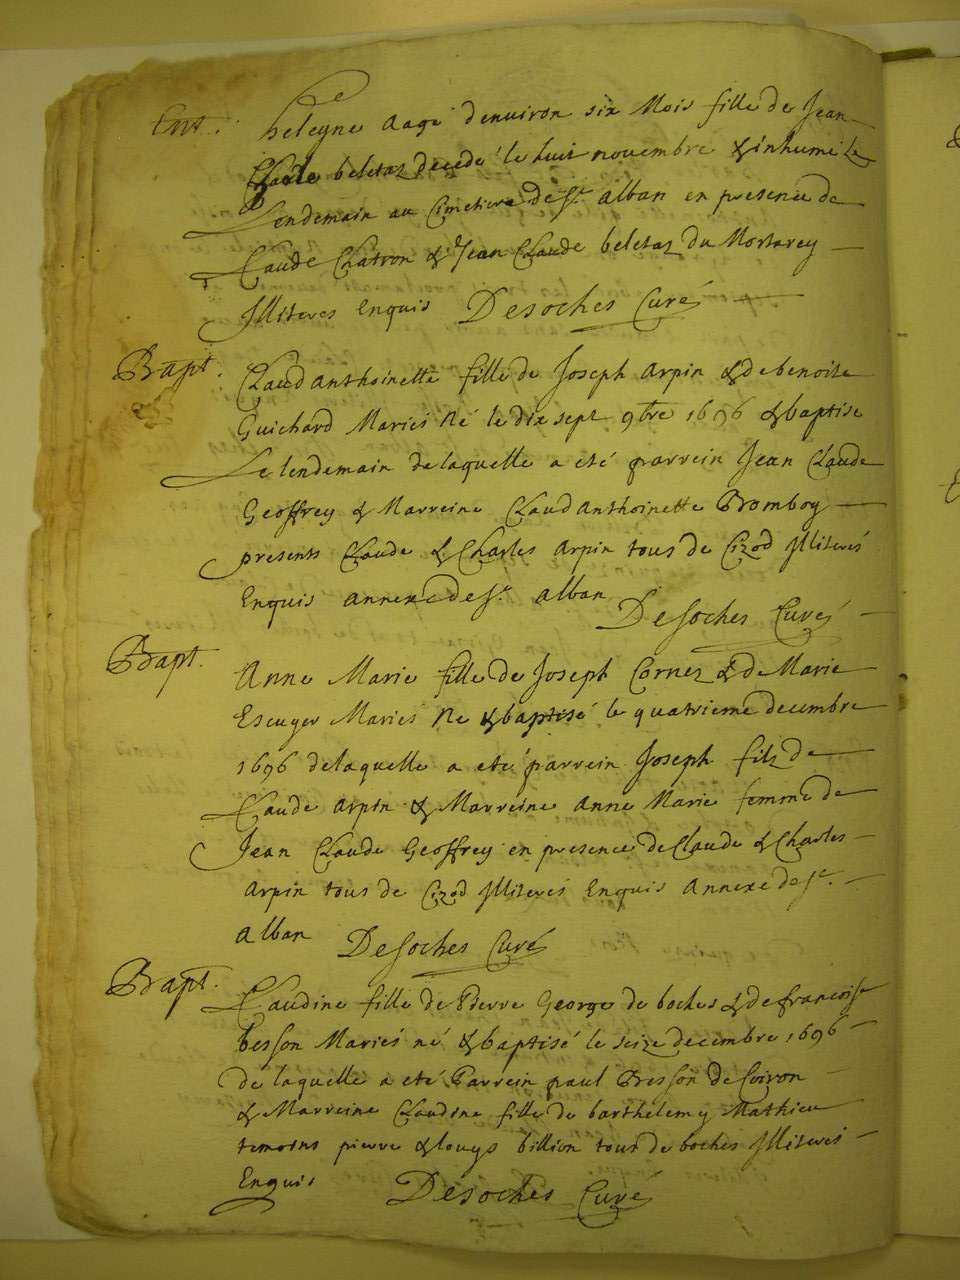 Ent. heleyne aagé denuiron six Mois fille de Jean
Claude beletaz decedé le huit novembre & inhumé le
Lendemain au Cimetiere de St. alban en presence de
Claude Chatron & Jean Claude beletaz du Mortarey
Jlliteres Enquis Desoches Curé
Bapt. Claud anthoinette fille de Joseph arpin & de benoite
Guichard Mariés né le dix sept 9bre 1696 & baptise
Le lendemain de laquelle a eté parrein Jean Claude
Geoffrey & Marreine Claud anthoinette Bromboy
presents Claude & Charles arpin tous de Cizod Jlliterés
Enquis annexe de St. alban Desoches Curé
Bapt. Anne Marie fille de Joseph Cornez & de Marie
Escuyer Mariés Né & baptisé le quatrieme decembre
1696 de laquelle a eté parrein Joseph filz de
Claude arpin & Marreine anne Marie femme de
Jean Claude Geoffrey en presence de Claude & Charles
arpin tous de Cizod Jlliterés Enquis annexe de St.
alban Desoches Curé
Bapt. Claudine fille de Pierre George de boches & de francoise
besson Mariés né & baptisé le seize decembre 1696
de laquelle a eté Parrein paul Bresson de Coiron
& Marreine Claudine fille de barthelemy Mathieu
temoins pierre & louys billion tous de boches Jlliterés
Enquis Desoches Curé